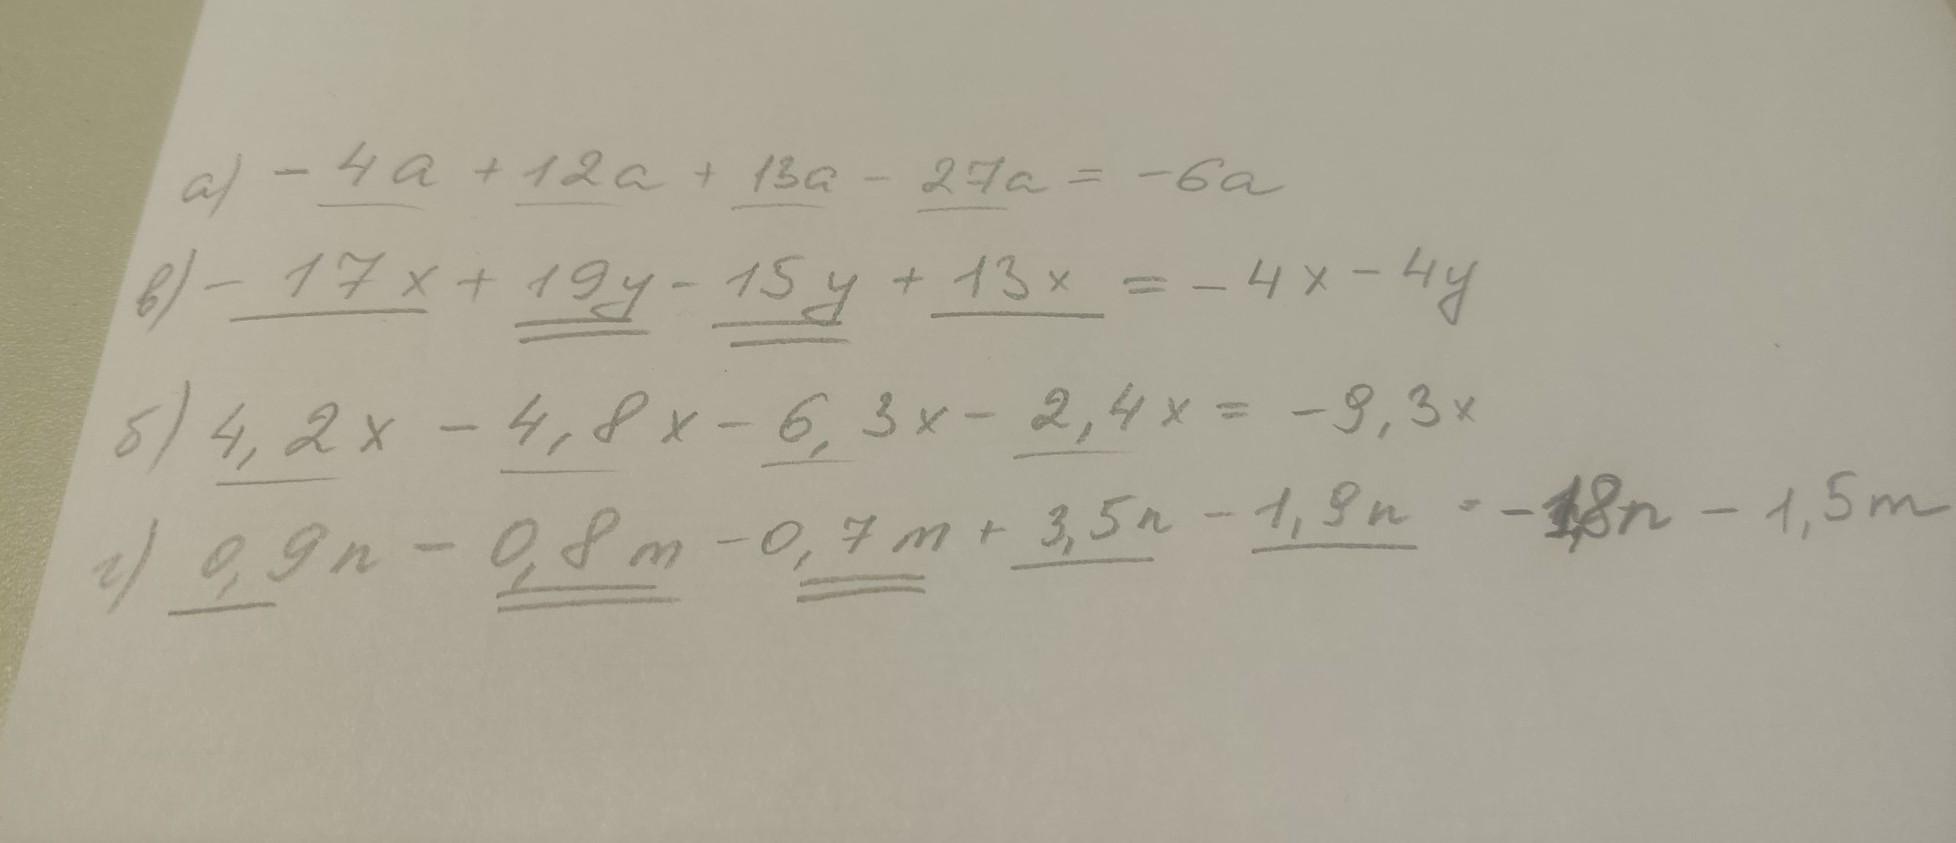 а) - 4a + 12a + 13a - 27a = -6a
в) - 17x + 19y - 15y + 13x = - 4x - 4y
б) 4,2x - 4,8x - 6,3x - 2,4x = -9,3x
г) 0,9n - 0,8m - 0,7m + 3,5n - 1,9n = -1,8n - 1,5m